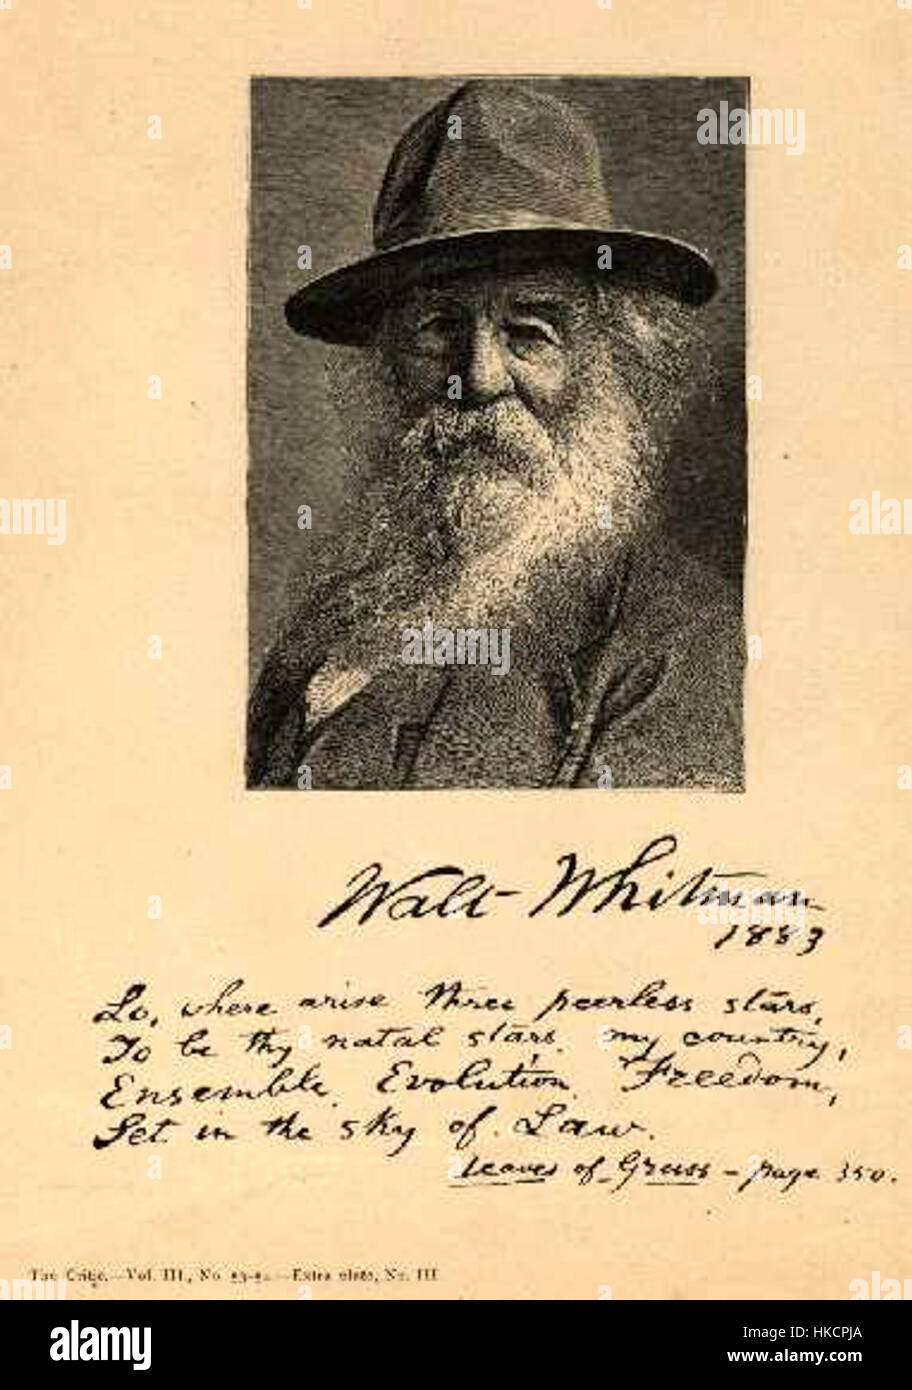 Walt Whitman
1883
Lo, where arise three peerless stars,
To be thy natal stars my country,
Ensemble, Evolution, Freedom,
Set in the sky of Law.
Leaves of Grass – page 350.
The Critic.—Vol. III., No. —Extra plate, No. III
alamy
alamy
alamy
alamy
Image ID: HKCPJA
www.alamy.com